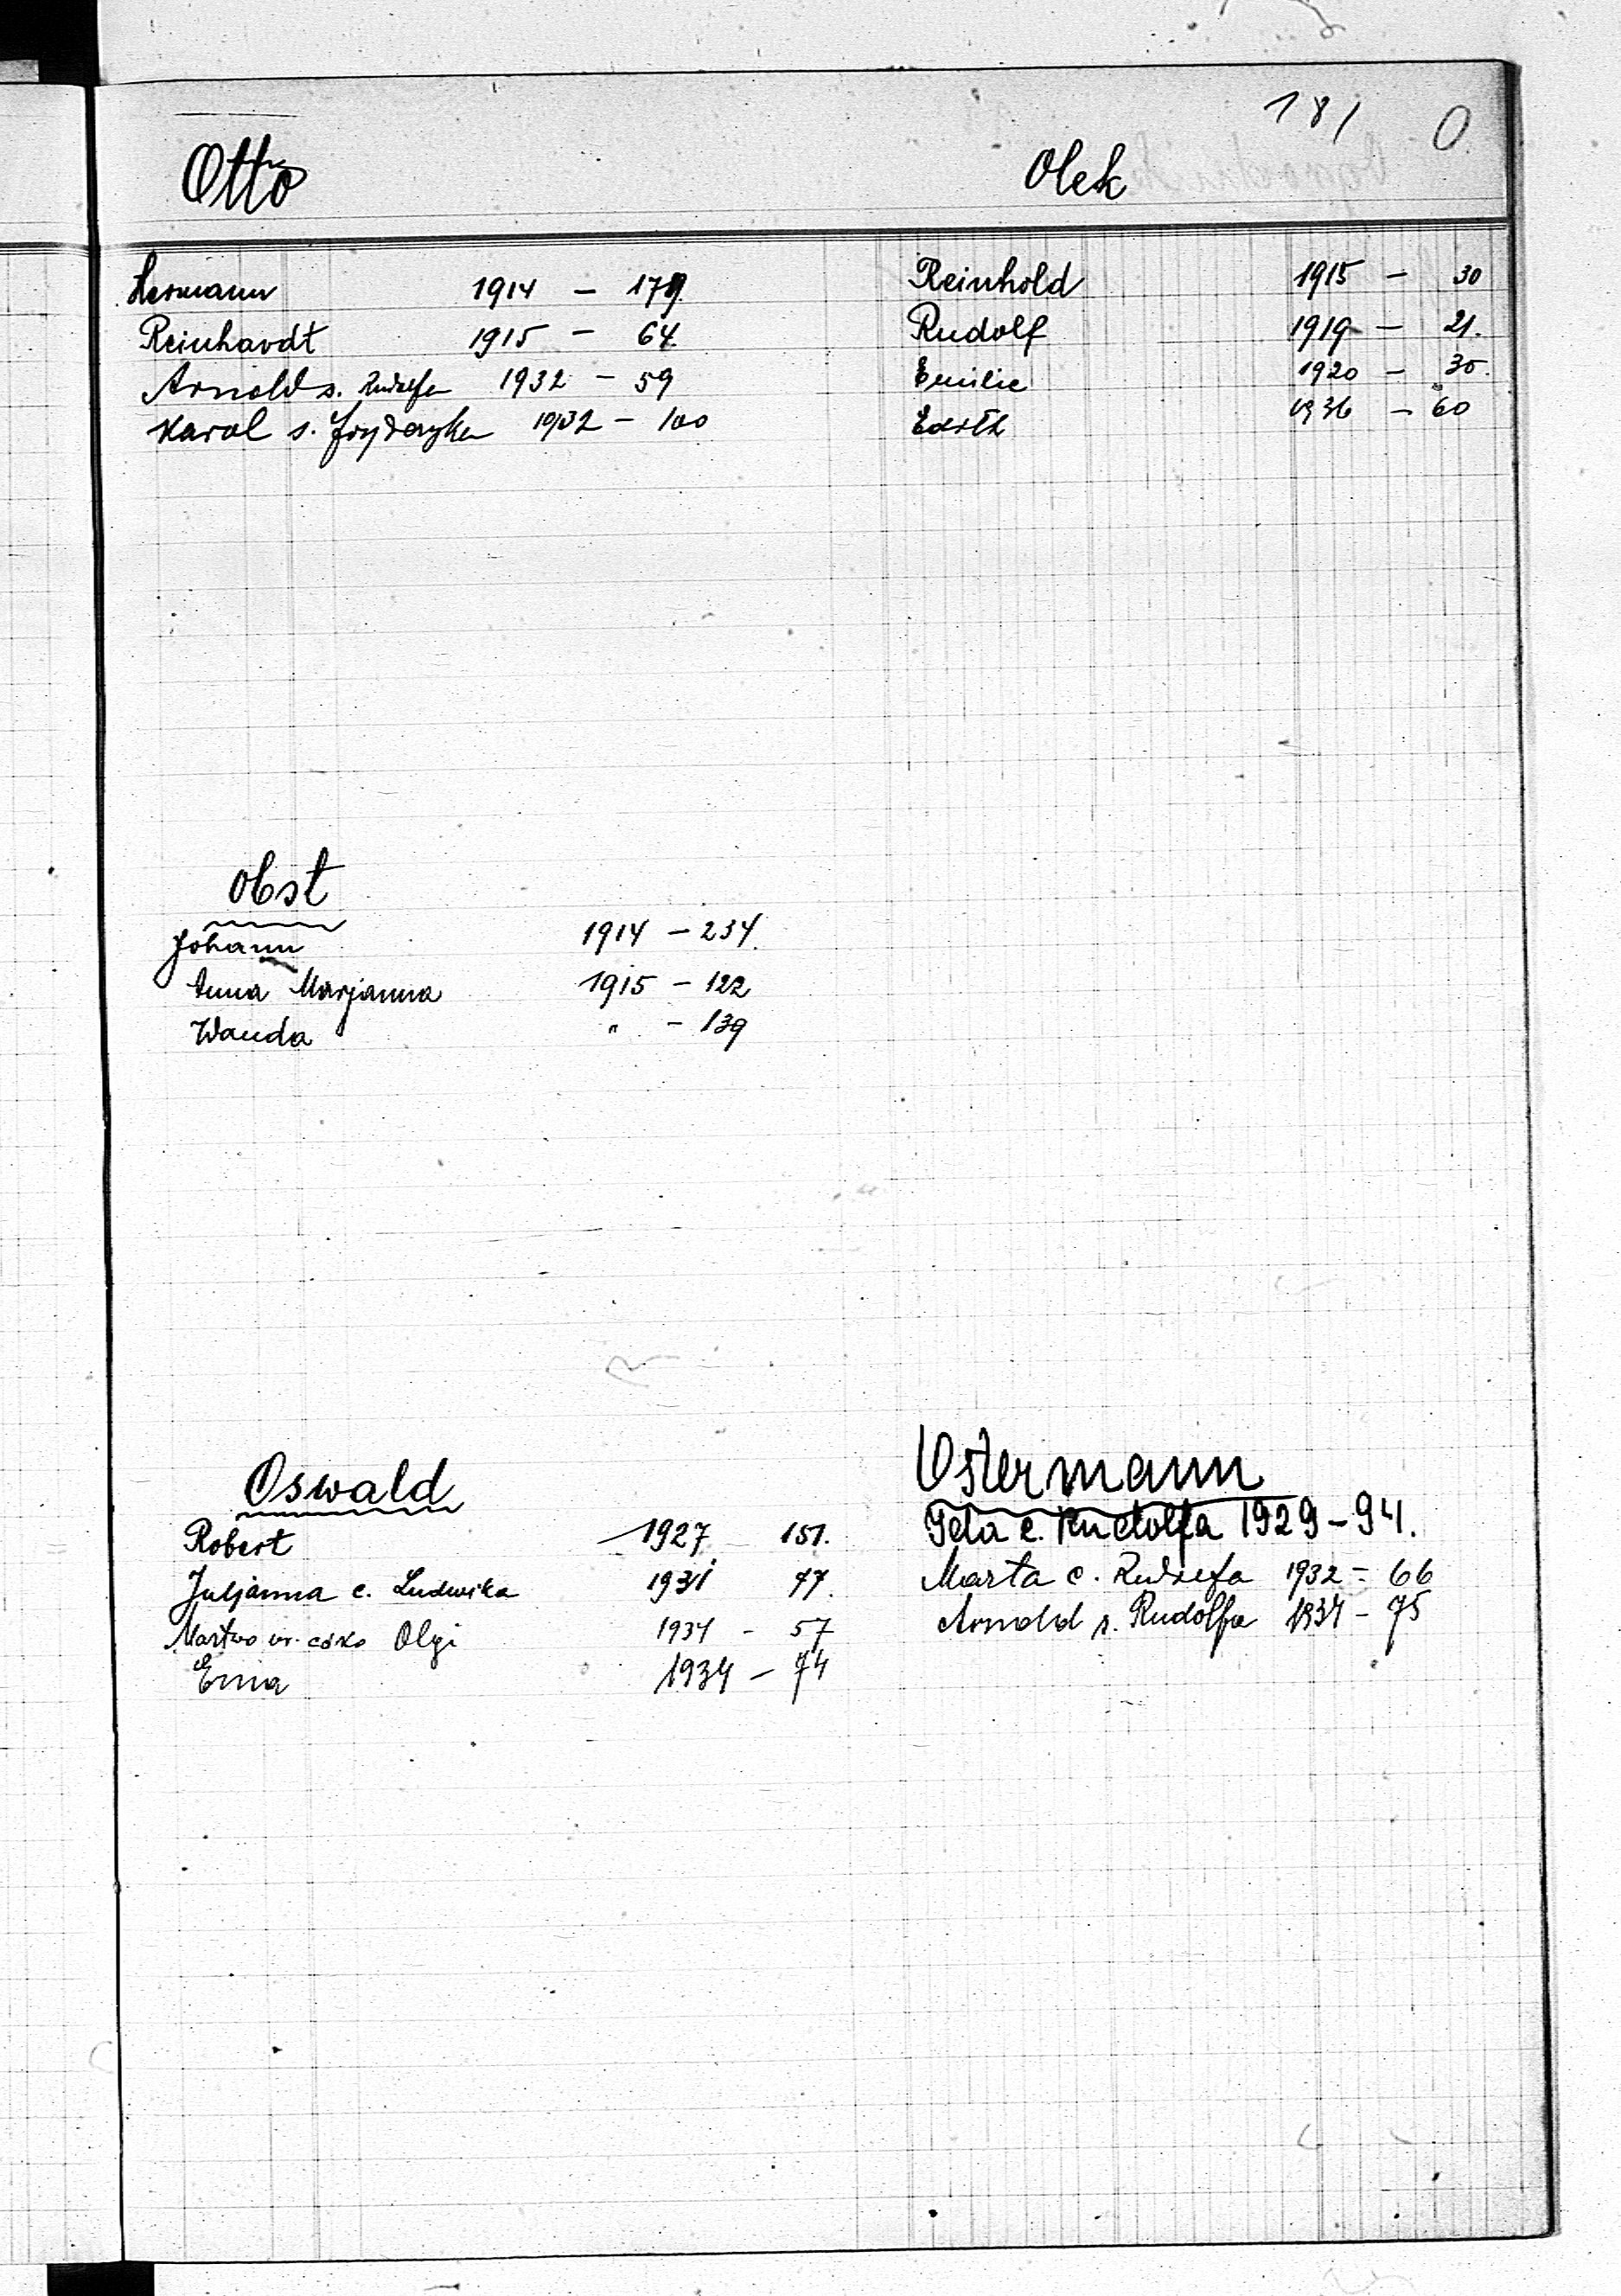 181 O
Otto
Hermann 1914 - 179.
Reinhardt 1915 - 64.
Arnold s. Rudolfa 1932 - 59
Karol s. Fryderyka 1932 - 100
Olek
Reinhold 1915 - 30
Rudolf 1919 - 21.
Emilie 1920 - 35.
Edith 1936 - 60
Obst
Johann 1914 - 234.
Anna Marjanna 1915 - 122
Wanda " - 139
Oswald
Robert 1927 151.
Juljanna c. Ludwika 1931 47.
Martwo ur. córka Olgi 1934 - 57
Erna 1934 - 74
Ostermann
Ida c. Rudolfa 1929 - 94.
Marta c. Rudolfa 1932 - 66
Arnold s. Rudolfa 1934 - 75